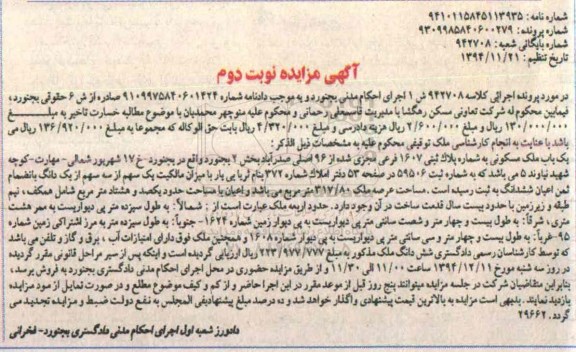 شماره نامه: ۹۴۱۰۱۱۵۸۴۵۱۱۳۹۳۵
شماره پرونده: ۹۳۰۹۹۸۵۸۴۰۶۰۰۲۷۹
شماره بایگانی شعبه: ۹۴۲۷۰۸
تاریخ تنظیم: ۱۳۹۴/۱۱/۲۱
آگهی مزایده نوبت دوم
در مورد پرونده اجرائی کلاسه ۹۴۲۷۰۸ ش ۱ اجرای احکام مدنی بجنورد و به موجب دادنامه شماره ۹۱۰۹۹۷۵۸۴۰۶۰۱۴۲۴ صادره از ش ۶ حقوقی بجنورد،
فیمابین محکوم له شرکت تعاونی مسکن رهگشا با مدیریت اسمعلی رحمانی و محکوم علیه منوچهر محمدیان با موضوع مطالبه خسارت تاخیر به مبلغ
۱۳۰/۰۰۰/۰۰۰ ریال و مبلغ ۲/۶۰۰/۰۰۰ ریال هزینه دادرسی و مبلغ ۴/۳۲۰/۰۰۰ ریال بابت حق الوکاله که مجموعا به مبلغ ۱۳۶/۹۲۰/۰۰۰ ریال می
باشد با عنایت به انجام کارشناسی ملک توقیفی محکوم علیه به مشخصات ذیل الذکر:
یک باب ملک مسکونی به شماره پلاک ثبتی ۱۶۰۷ فرعی مجزی شده از ۹۶ اصلی صدرآباد بخش ۲ بجنورد واقع در بجنورد-خ ۱۷ شهریور شمالی-مهارت-کوچه
شهید نیاوند ۵ می باشد که به شماره ثبت ۵۹۵۰۶ در صفحه ۵۳ دفتر املاک شماره ۳۷۲ بنام ثریا پی یار با میزان مالکیت یک سهم از سه سهم از یک دانگ بانضمام
ثمن اعیان ششدانگ به ثبت رسیده است. مساحت عرصه ملک ۳۱۷/۸۰ متر مربع می باشد و اعیان با مساحت حدود یکصد و هشتاد متر مربع شامل همکف، نیم
طبقه و زیرزمین با حدود بیست سال قدمت ساخت در آن وجود دارد. حدود اربعه ملک عبارت است از: شمالاً: به طول سیزده متر پی دیواریست به ممر هشت
متری، شرقاً: به طول بیست و چهار متر و شصت سانتی متر پی دیواریست به پی دیوار زمین شماره ۱۶۲۴- جنوباً: به طول سیزده متر به مرز اشتراکی زمین شماره
۹۵-غرباً: به طول بیست و چهار متر و سی سانتی متر پی دیواریست به پی دیوار شماره ۱۶۰۸ و همچنین ملک فوق دارای امتیازات آب، برق و گاز و تلفن می باشد
که توسط کارشناسان رسمی دادگستری شش دانگ ملک مذکور به مبلغ ۲۲۳/۹۷۷/۷۷۷ ریال ارزیابی گردیده است و اینکه پس از سیر مراحل قانونی مقرر گردیده
در روز سه شنبه مورخ ۱۳۹۴/۱۲/۱۱ ساعت ۱۱/۰۰ الی ۱۱/۳۰ و از طریق مزایده حضوری در محل اجرای احکام مدنی دادگستری بجنورد به فروش برسد،
بنابراین متقاضیان شرکت در جلسه مزایده میتوانند پنج روز قبل از موعد مقرر در این اجرا حاضر و از کم و کیف موضوع مطلع و در صورت تمایل از مورد مزایده
بازدید نمایند. بدیهی است مزایده به بالاترین قیمت پیشنهادی واگذار خواهد شد و ده درصد مبلغ پیشنهادی فی المجلس به نفع دولت ضبط و مزایده تجدید می
گردد. ۲۹۶۶۲
دادورز شعبه اول اجرای احکام مدنی دادگستری بجنورد- فخرانی